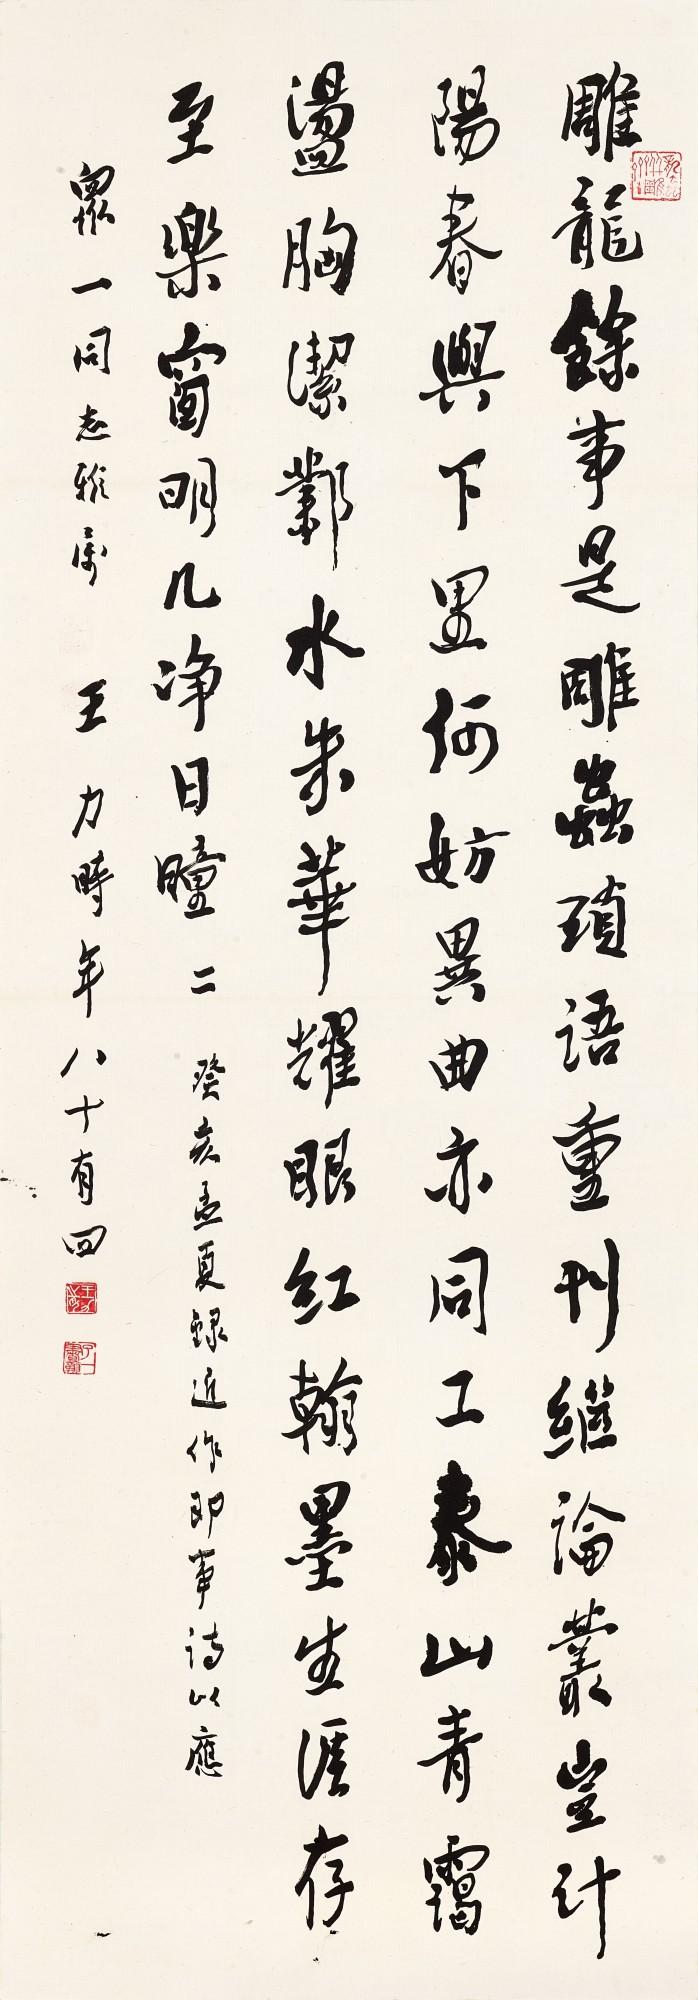 雕龍餘事是雕蟲瑣語重刊繼論叢豈計
陽春與下里何妨異曲亦同工泰山青靄
盪胸潔鄴水朱華耀眼紅翰墨生涯存
至樂窗明几净日曈二癸亥孟夏録近作即事詩以應
眾一同志雅属王力時年八十有四
王力